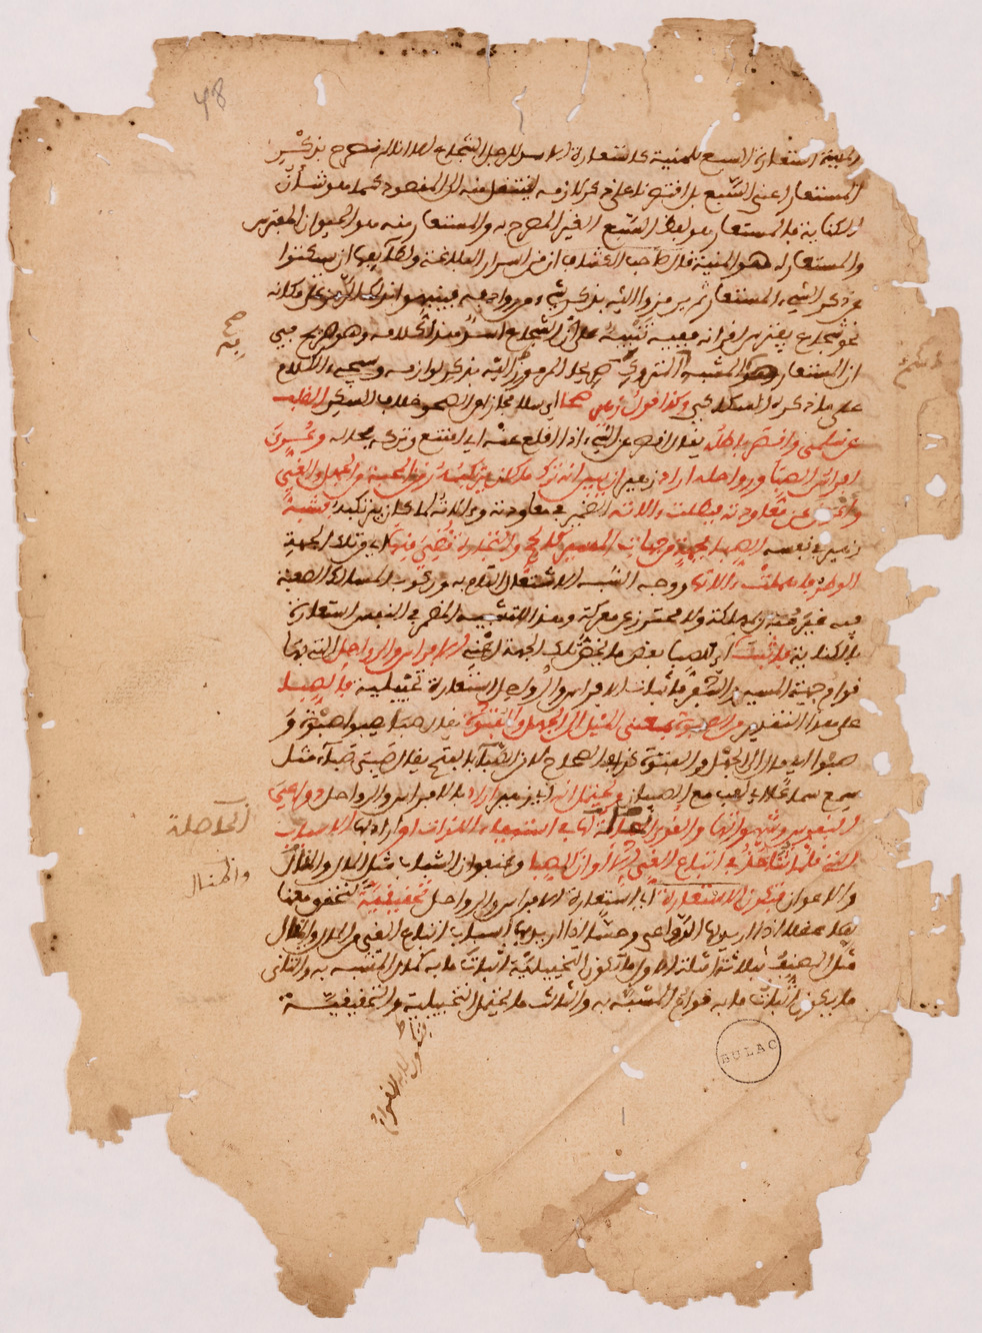 المنية استعارة السبع للمنية كاستعارة الاسد للرجل الشجاع الا انا لم نصرح بذكْرِ
المستعار اعني السّبع بل اقتصرنا على ذكر لازمه لينتقل منه الى المقصود كما هو شأنُ
الكناية فالمستعار هو لفظ السبع الغير المصرح به والمستعار منه هو الحيوان المفترس
والمستعار له هو المنية قال صاحب الكشاف ان من اسرار البلاغة ولطايفها ان يسكتوا
عن ذكر الشيء المستعار ثم يرمزوا اليه بذكر شيء من روادفه فينبهوا بذلك الرمز على مكانه
نحو شجاع يفترس اقرانه ففيه تنبيهٌ على انّ الشجاع اسدٌ هذا كلامه وهو صريح في
ان المستعار هو المشبه المتروك المرموز اليه بذكر لوازمه وسيجيء الكلام
على ما ذكره السكاكي وكذا قول زهير صحا اي سلا مجازا من الصحو خلاف السكر القلب
عن سلمى واقصر باطله يقال اقصر عن الشيء اذا اقلع عنه اي امتنع وتركه بحاله وعُرّيَ
افراسُ الصبا ورواحله اراد زهير ان يبين انه ترك ما كان يرتكبُه زمن المحبة من الجهل والغيّ
واعرض عن معاودته فبطلت ءالاته الضمير في معاودته وءالاته لما كان يرتكبه فشبّه
زهير في نفسه الصبا بجهة من جهات المسير كالحج والتجارة قُضي منها اي من تلك الجهة
الوطر فاهملت ءالاتها ووجه الشبه الاشتغال التام به وركوب المسالك الصعبة
فيه غير مبال بمهلكة ولا محترز عن معركة وهذا التشبيه المضمر في النفس استعارة
بالكناية فاثبت له اي للصبا بعض ما يخصّ تلك الجهة اعني الافراس والرواحل التي بها
قوام جهة المسير والسّفر فاثبات الافراس والرواحل استعارة تخييلية فالصبا
على هذا التقدير من الصبوة بمعنى الميل الى الجهل والفتوة يقال صبا يصبوا صبوة و
صبوّا اي مال الى الجهل والفتوة كذا في الصحاح لا من الصّباء بالفتح يقال صبي صباء مثل
سمع سماعا اي لعب مع الصبيان ويحتمل انه اي زهير اراد بالافراس والرواحل دواعي
النفوس وشهواتها والقوى الحاصلة لها في استيفاء اللذات او اراد بها الاسباب
التي قلّما تتّاخذ في اتباع الغيّ الا اوان الصبا وعنفوان الشباب مثل المال والمنال
والاعوان فتكون الاستعارة اي استعارة الافراس والرواحل تحقيقيّة لتحقق معناها
عقلا اذا اريد بها الدّواعي وحسّا اذا اريد بها اسباب اتباع الغي من المال والمنال
مثّل المصنف بثلاثة امثلة الاول ما تكون التخييليّة اثبات ما به كمال المشبه به والثاني
ما يكون اثبات ما به قوام المشبّه به والثالث ما يحتمل التخييلية والتحقيقيّة
صح
به
الحاصلة
والمنال
BULAC